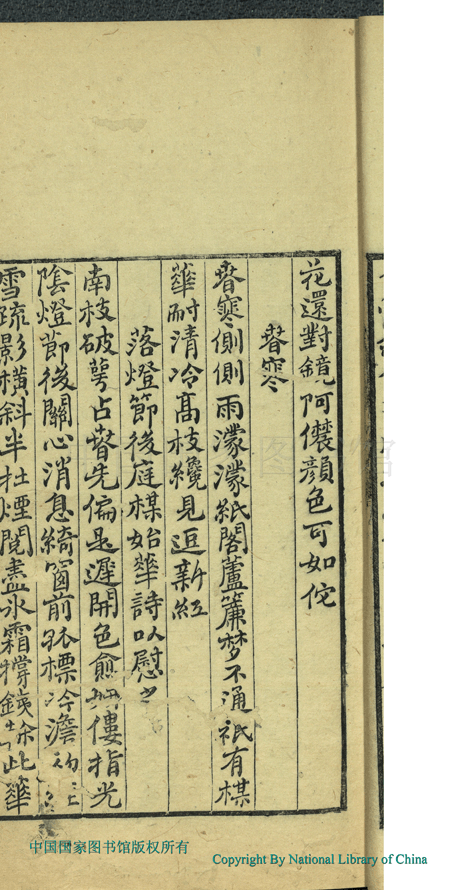 花還對鏡阿儂顏色可如佗
春寒
春寒側側雨濛濛紙閣蘆簾梦不通祇有楳
華耐清冷高枝纔見逗新紅
落燈節後庭楳始華詩以慰之
南枝破萼占春先偏是遲開色愈妍僂指光
陰燈節後關心消息綺窗前 標冷澹
雪疏影橫斜半牡煙閱盡冰霜撐鐵 此華
中国国家图书馆版权所有
Copyright By National Library of China